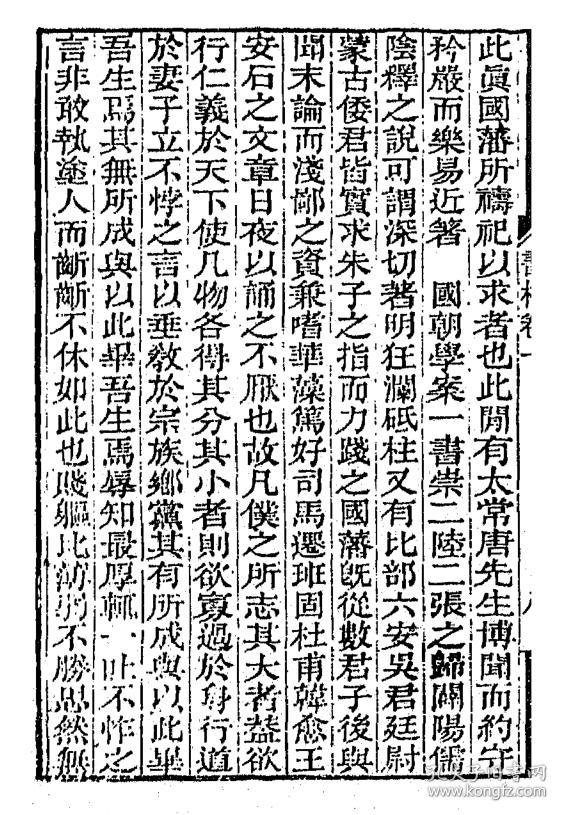 此眞國藩所禱祀以求者也此閒有太常唐先生博聞而約守
矜嚴而樂易近著　國朝學案一書崇二陸二張之歸闢陽儒
陰釋之說可謂深切著明狂瀾砥柱又有比部六安吳君廷尉
蒙古倭君皆實求朱子之指而力踐之國藩旣從數君子後與
聞末論而淺鄙之資兼嗜華藻篤好司馬遷班固杜甫韓愈王
安石之文章日夜以誦之不厭也故凡僕之所志其大者葢欲
行仁義於天下使凡物各得其分其小者則欲寡過於身行道
於妻子立不悖之言以垂敎於宗族鄉黨其有所成與以此畢
吾生焉其無所成與以此畢吾生焉辱知最厚輒一吐不怍之
言非敢執塗人而齗齗不休如此也賤軀比薄弱不勝思然無
孔夫子旧书网
www.kongfz.com